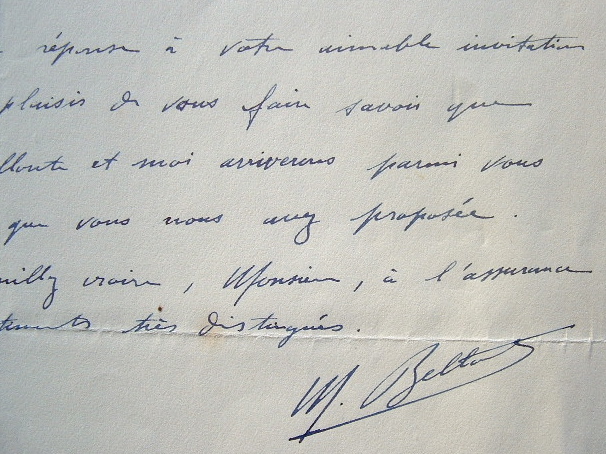 réponse à votre aimable invitation
plaisir de vous faire savoir que
et moi arriverons parmi vous
que vous nous avez proposée.
croire, Monsieur, à l'assurance
très distingués.
M.